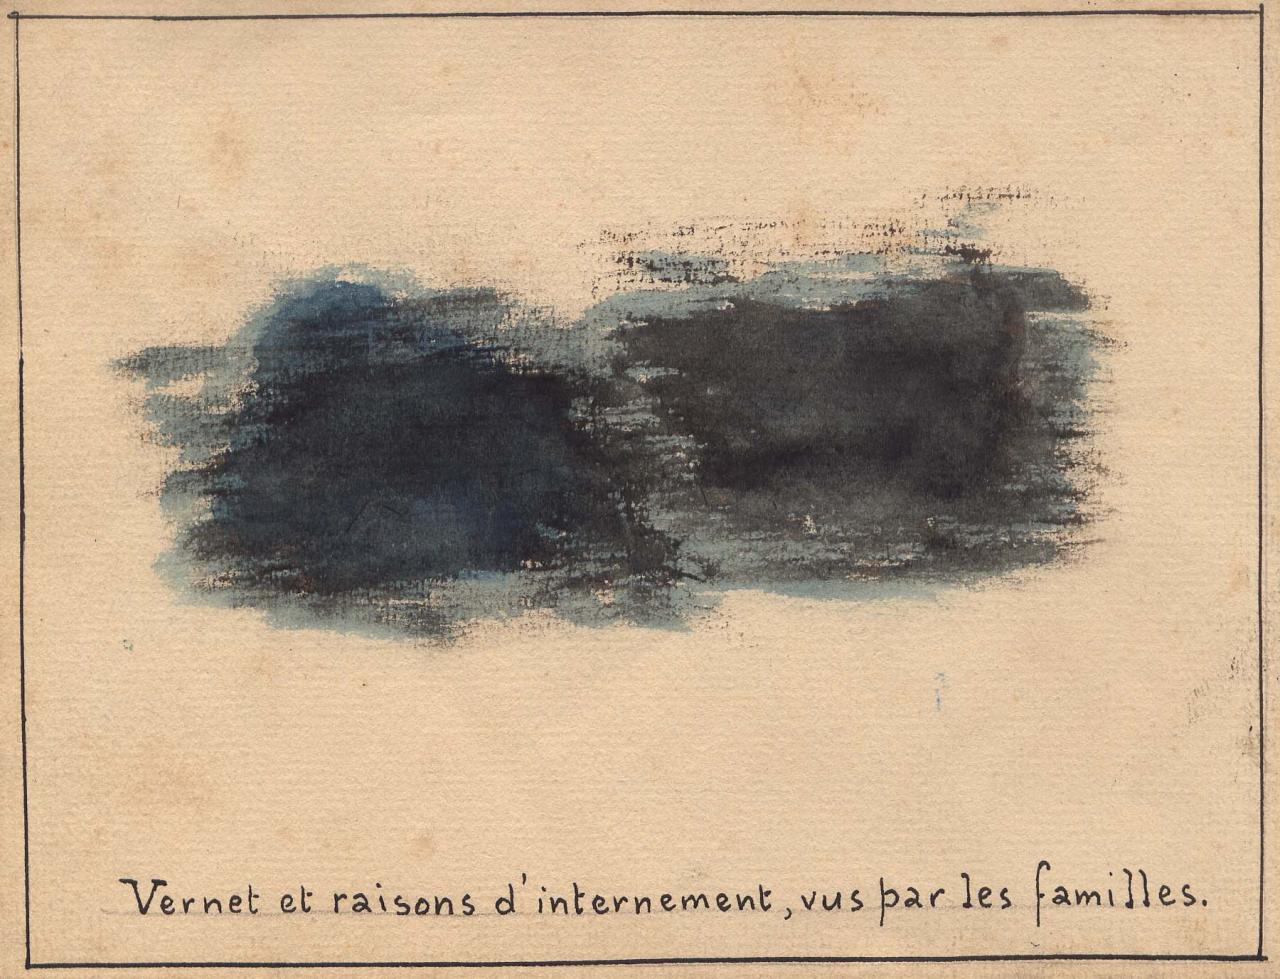 Vernet et raisons d'internement, vus par les familles.